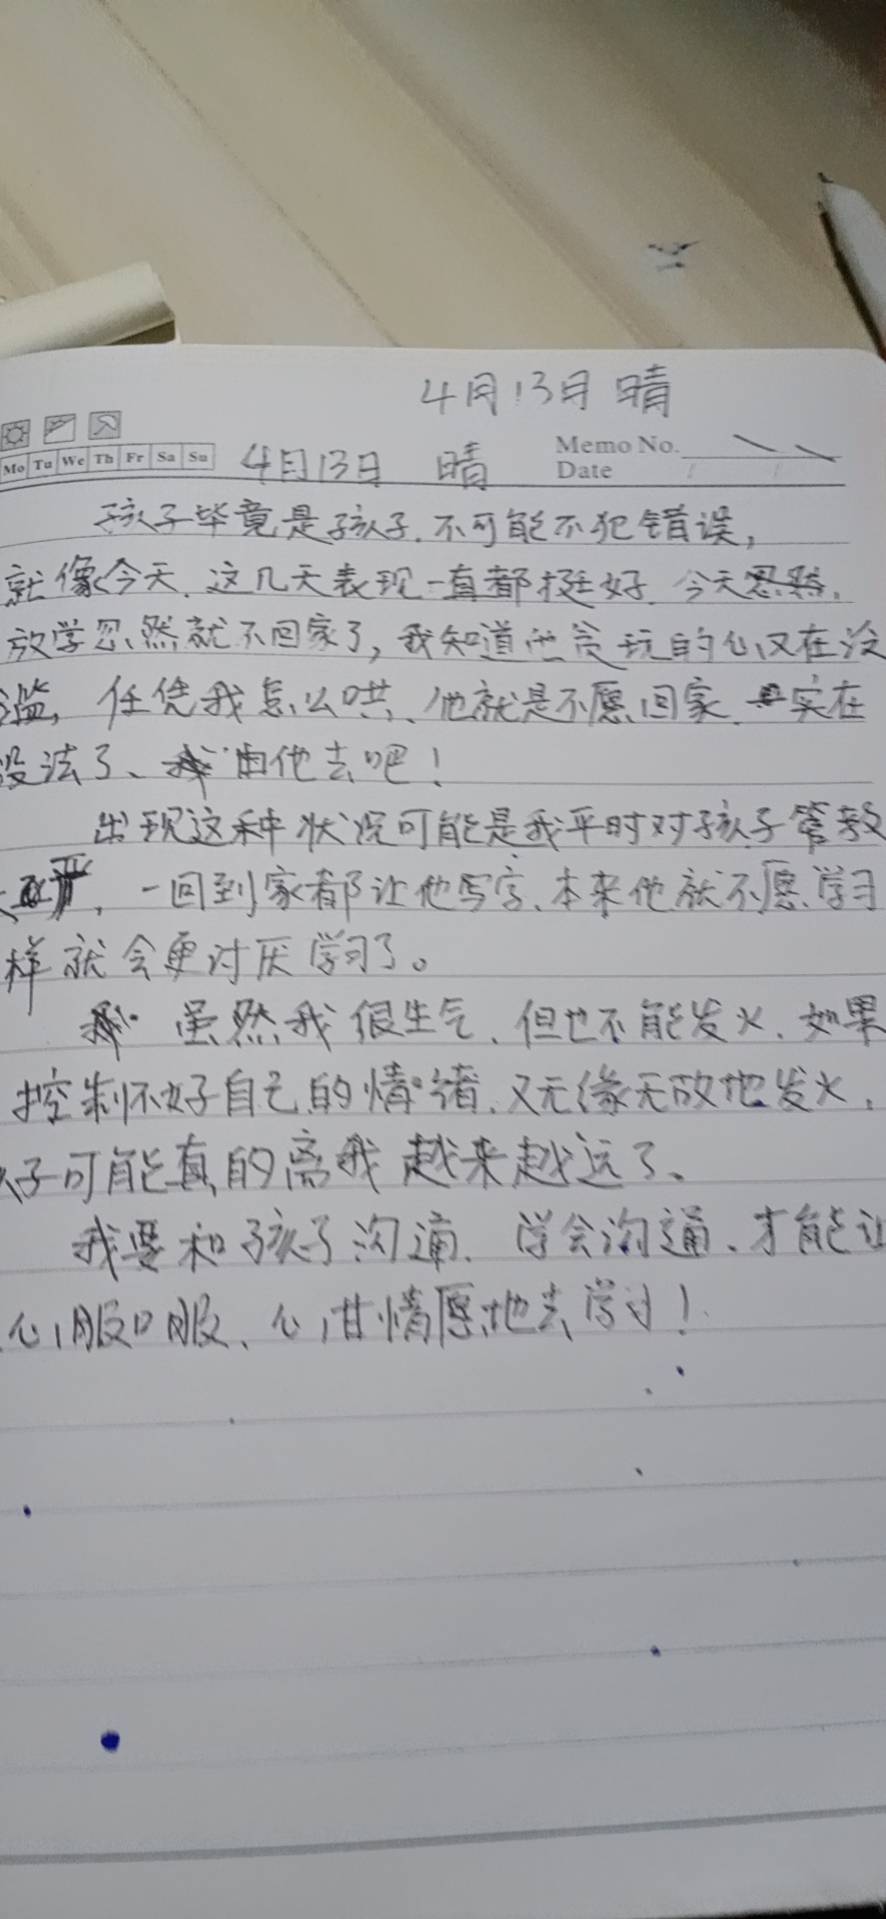 4月13日 晴
Memo No.
Mo Tu We Th Fr Sa Su 4月13日 晴 Date
孩子毕竟是孩子.不可能不犯错误,
就像今天.这几天表现一直都挺好.今天忽然.
放学忽然就不回家了,我知道他贪玩的心又在泛
滥,任凭我怎么哄、他就是不愿回家.实在
没法了、由他去吧!
出现这种状况可能是我平时对孩子管教
严,一回到家都让他写字.本来他就不愿学习
样就会更讨厌学习了。
虽然我很生气、但也不能发火.如果
控制不好自己的情绪.又无缘无故地发火,
子可能真的离我越来越远了、
我要和孩子沟通.学会沟通、才能让
心服口服、心甘情愿地去学习!